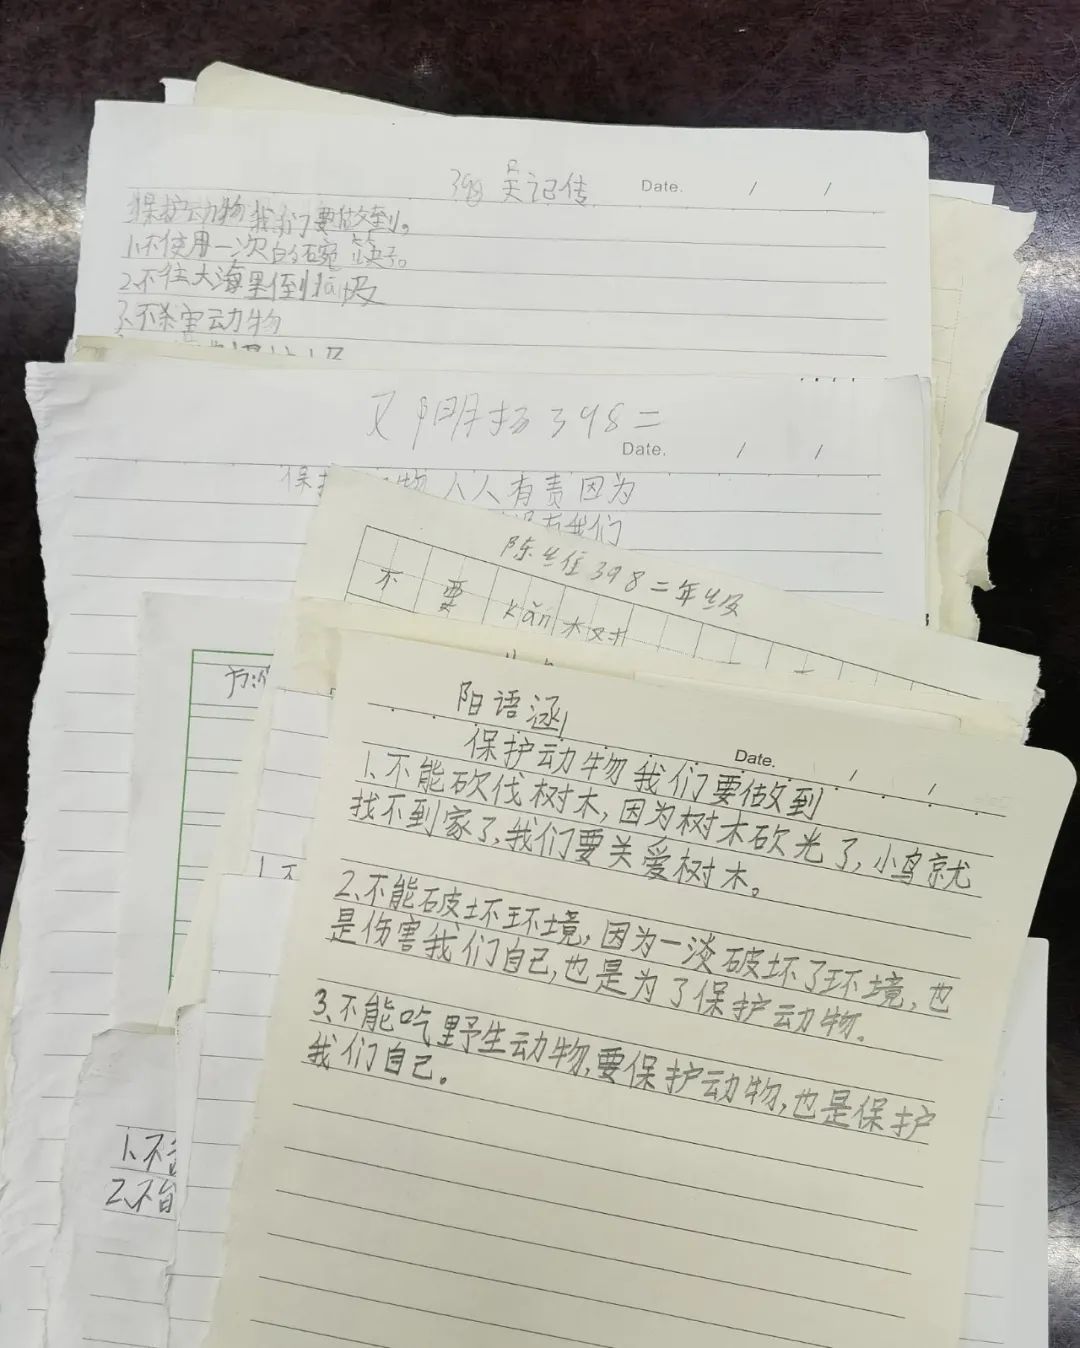 398 吴记传
Date. / /
保护动物我们要做到。
1.不使用一次的碗筷子。
2.不往大海里倒lā圾
3.不杀害动物
阳扬398二
Date. / /
保护 物人人有责因为
没有我们
陈 398二年级
不要kǎn木对
阳语涵
Date. / /
保护动物我们要做到
1、不能砍伐树木,因为树木砍光了,小鸟就
找不到家了,我们要关爱树木。
2、不能破坏环境,因为一淡破坏了环境,也
是伤害我们自己,也是为了保护动物.
3、不能吃野生动物,要保护动物,也是保护
我们自己.
1不
1、不
2、不